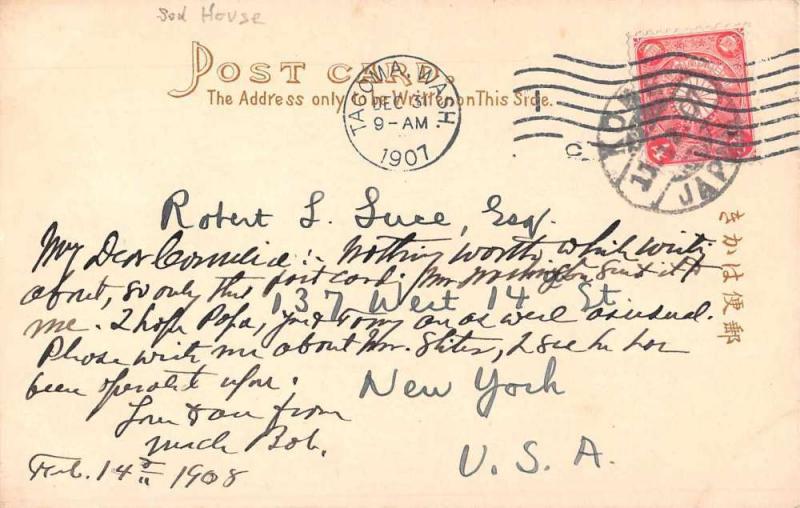 Sod House
POST CARD.
The Address only to be Written on This Side.
TACOMA, WASH.
DEC 31
9-AM
1907
JAPAN
きかは便郵
Robert L. Luce, Esq.
My Dear Cornelia:- Nothing worth while writing
about, so only this post card. Mr. sent it to
me. I hope Papa, you & Tony are as well as usual.
137 West 14 St
Please write me about Mr. I see he has
been operated upon.
New York
Love & all from
Uncle Bob.
U. S. A.
Feb. 14th 1908